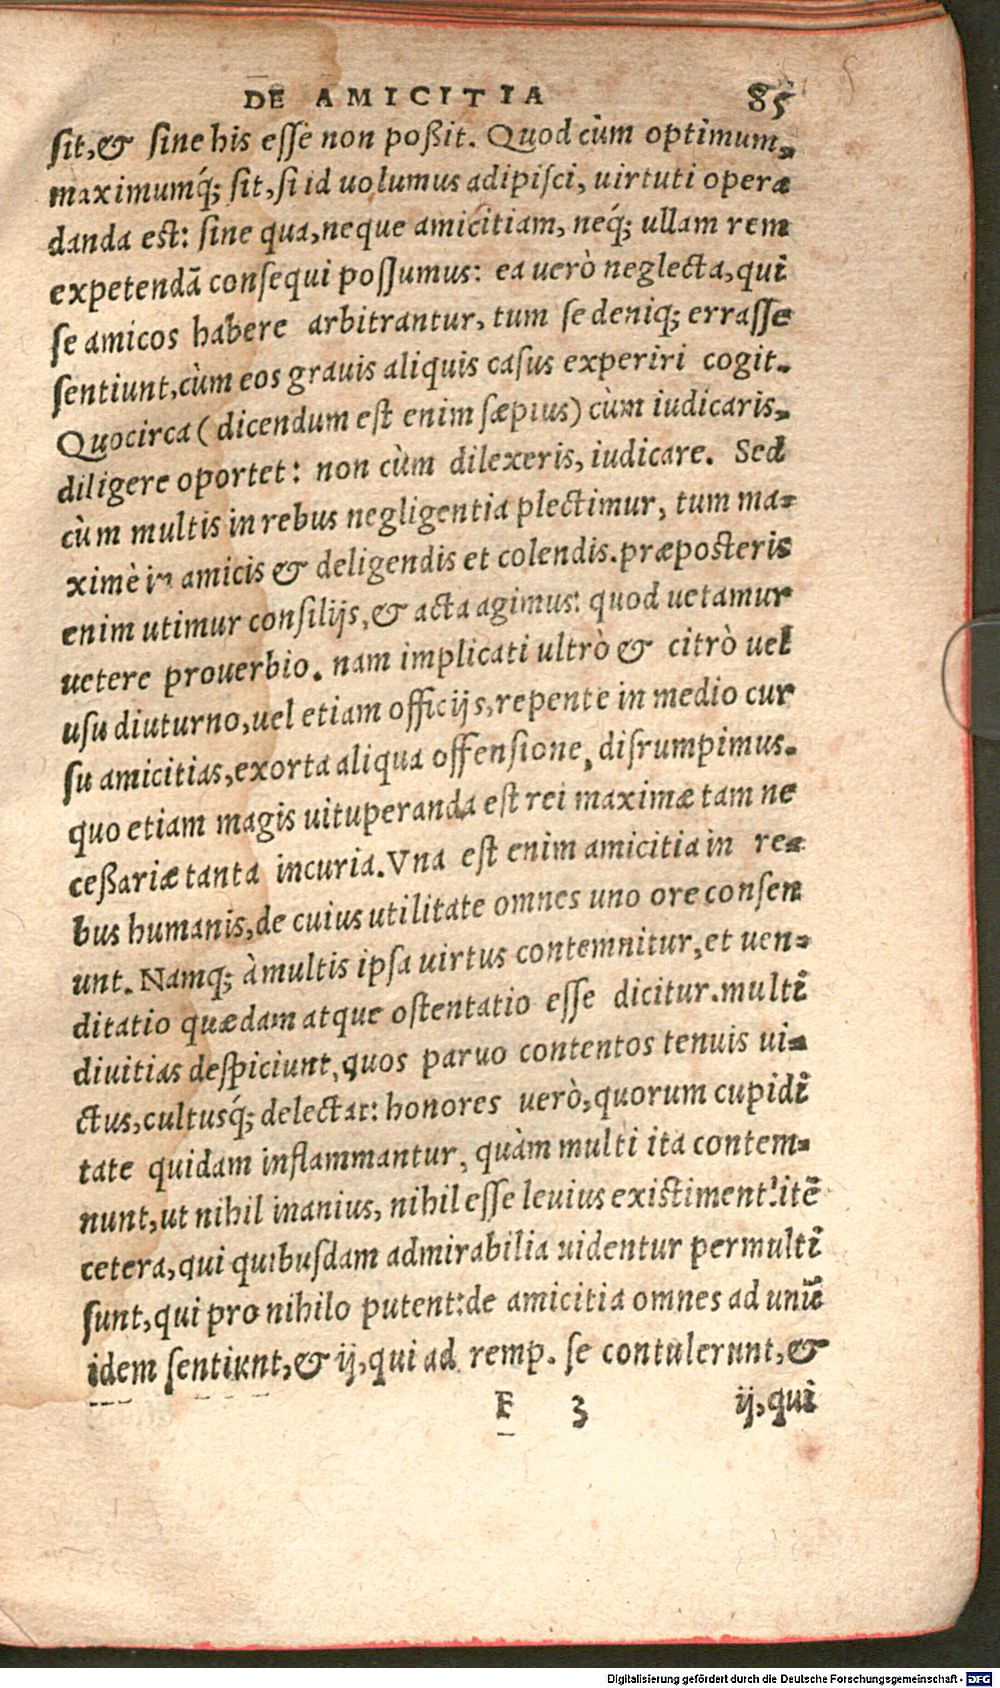 DE AMICITIA 85
sit,& sine his esse non poßit. Quod cùm optimum,
maximumq́; sit, si id uolumus adipisci, uirtuti operæ
danda est: sine qua, neque amicitiam, neq́; ullam rem
expetendā consequi possumus: ea uerò neglecta, qui
se amicos habere arbitrantur, tum se deniq; errasse
sentiunt, cùm eos grauis aliquis casus experiri cogit.
Quocirca (dicendum est enim sæpius) cùm iudicaris,
diligere oportet: non cùm dilexeris, iudicare. Sed
cùm multis in rebus negligentia plectimur, tum ma-
ximè in amicis & deligendis et colendis. præposteris
enim utimur consilijs, & acta agimus: quod uetamur
uetere prouerbio. nam implicati ultrò & citrò uel
usu diuturno, uel etiam officijs, repente in medio cur
su amicitias, exorta aliqua offensione, disrumpimus.
quo etiam magis uituperanda est rei maximæ tam ne
ceßariæ tanta incuria. Vna est enim amicitia in re-
bus humanis, de cuius utilitate omnes uno ore consen
unt. Namq; à multis ipsa uirtus contemnitur, et uen-
ditatio quædam atque ostentatio esse dicitur. multi
diuitias despiciunt, quos paruo contentos tenuis ui-
ctus, cultusq́; delectat: honores uerò, quorum cupidi
tate quidam inflammantur, quàm multi ita contem-
nunt, ut nihil inanius, nihil esse leuius existiment? itē
cetera, qui quibusdam admirabilia uidentur permulti
sunt, qui pro nihilo putent: de amicitia omnes ad unū
idem sentiunt, & ij, qui ad remp. se contulerunt, &
F 3 ij, qui
Digitalisierung gefördert durch die Deutsche Forschungsgemeinschaft - DFG